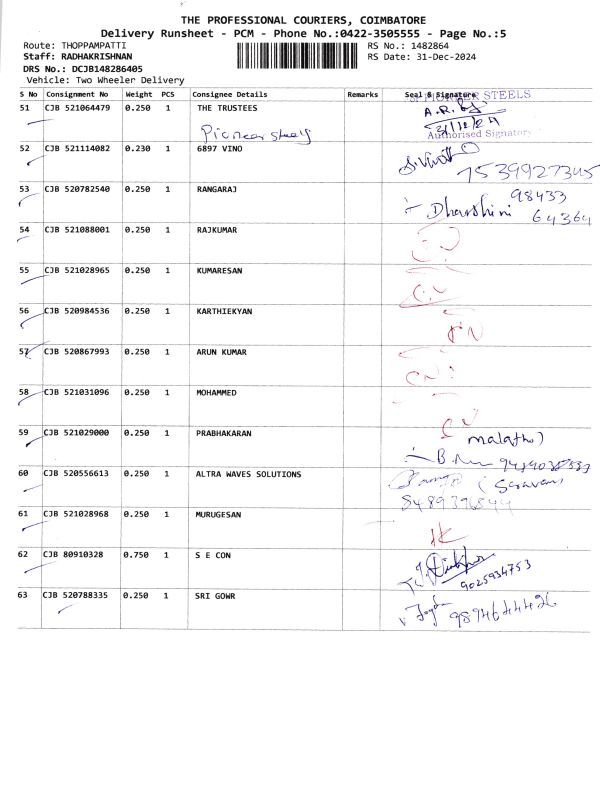 THE PROFESSIONAL COURIERS, COIMBATORE
Delivery Runsheet - PCM - Phone No.:0422-3505555 - Page No.:5
Route: THOPPAMPATTI RS No.: 1482864
Staff: RADHAKRISHNAN RS Date: 31-Dec-2024
DRS No.: DCJB148286405
Vehicle: Two Wheeler Delivery
S No Consignment No Weight PCS Consignee Details Remarks Seal & Signature
PIONEER STEELS
51 CJB 521064479 0.250 1 THE TRUSTEES
31/12/24
Pioneer steels Authorised Signatory
52 CJB 521114082 0.230 1 6897 VINO
7539927345
53 CJB 520782540 0.250 1 RANGARAJ 98433
Dharshini 64364
54 CJB 521088001 0.250 1 RAJKUMAR
55 CJB 521028965 0.250 1 KUMARESAN
56 CJB 520984536 0.250 1 KARTHIEKYAN
57 CJB 520867993 0.250 1 ARUN KUMAR
58 CJB 521031096 0.250 1 MOHAMMED
59 CJB 521029000 0.250 1 PRABHAKARAN
60 CJB 520556613 0.250 1 ALTRA WAVES SOLUTIONS
61 CJB 521028968 0.250 1 MURUGESAN
62 CJB 80910328 0.750 1 S E CON
9025934753
63 CJB 520788335 0.250 1 SRI GOWR